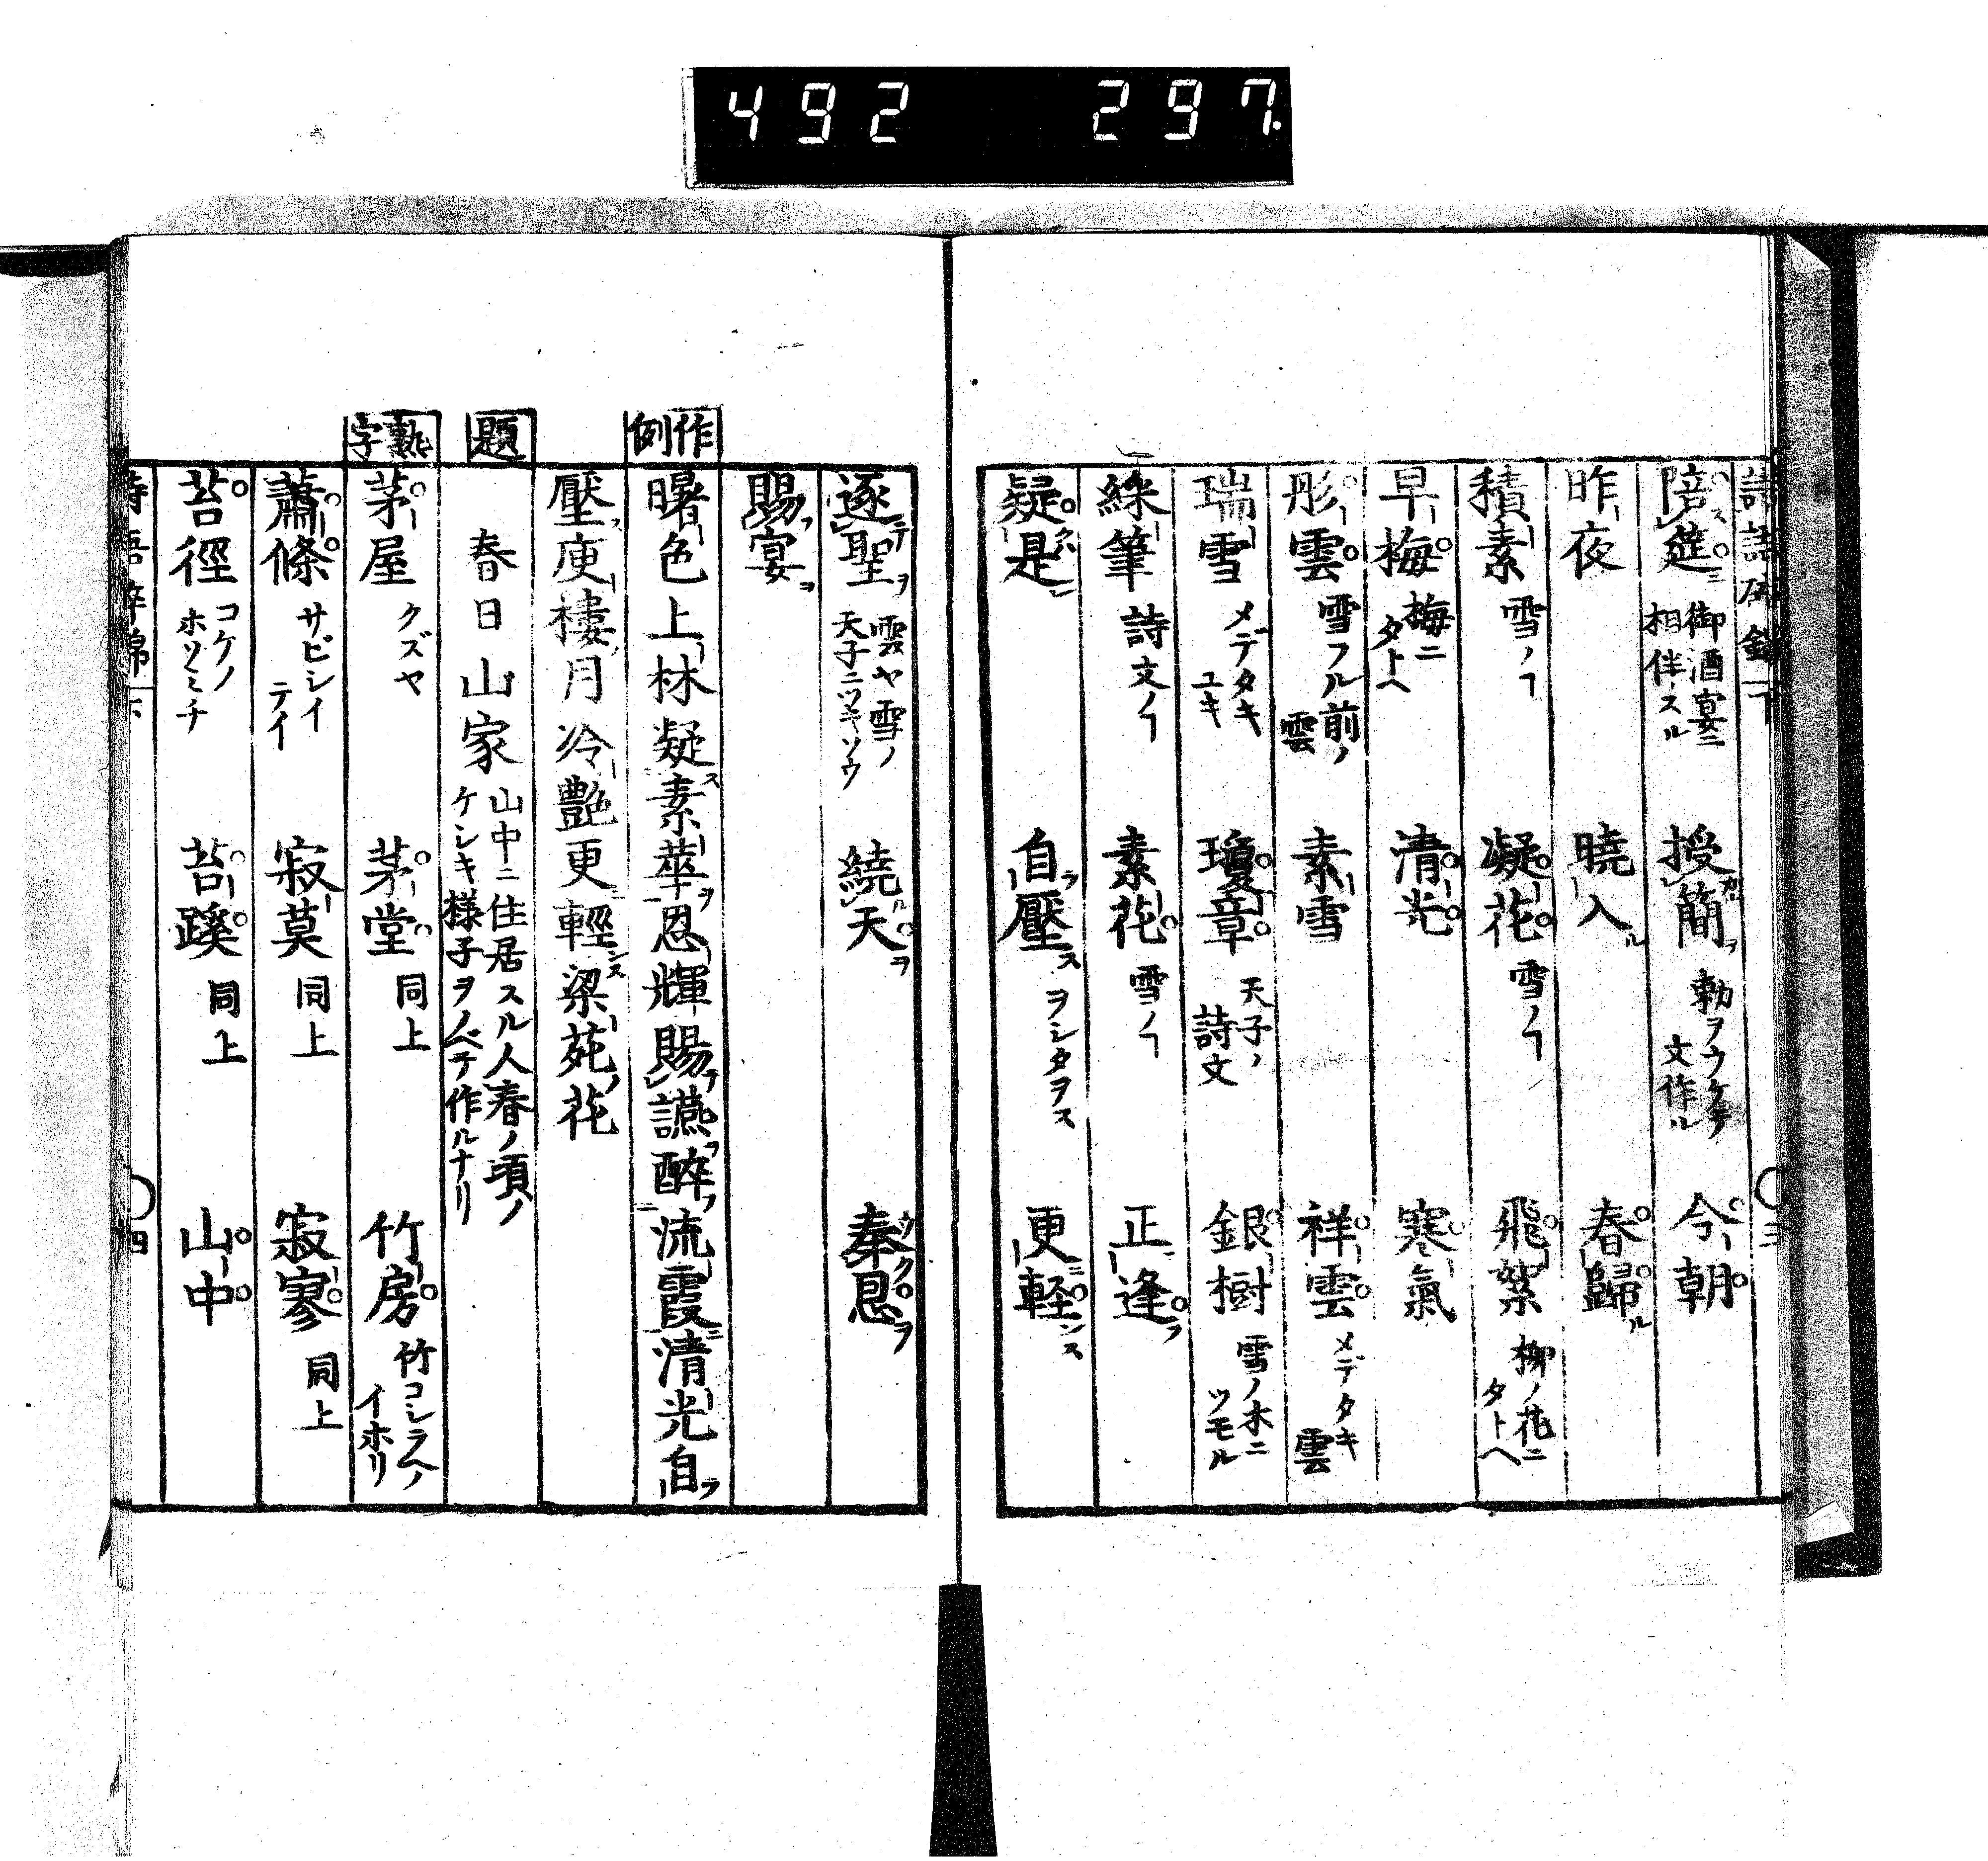 492 297.
陪筵 御酒宴ニ相伴スル 授簡 勅ヲウケテ文作ル 今朝
昨夜 曉入ル 春歸ル
積素 雪ノヿ 凝花 雪ノヿ 飛絮 柳ノ花ニタトヘ
早梅 梅ニタトヘ 清光 寒氣
彤雲 雪フル前ノ雲 素雪 祥雲 メデタキ雲
瑞雪 メデタキユキ 瓊章 天子ノ詩文 銀樹 雪ノ木ニツモル
綵筆 詩文ノヿ 素花 雪ノヿ 正逢フ
疑是 自壓ス ヲシタヲス 更輕ンス
逐聖ヲ 雲ヤ雪ノ天子ニツキソウ 繞天ヲ 奉恩ヲ
賜宴ヲ
作例
曙色上林疑素華ヲ恩輝賜讌醉流霞ニ清光自ラ
壓ス庾樓月冷艷更ニ輕ンス梁苑ノ花
題
春日山家 山中ニ住居スル人春ノ頃ノケシキ様子ヲノベテ作ルナリ
熟字
茅屋 クズヤ 茅堂 同上 竹房 竹コシラヘノイホリ
蕭條 サビシイテイ 寂莫 同上 寂寥 同上
苔徑 コケノホソミチ 苔蹊 同上 山中
四